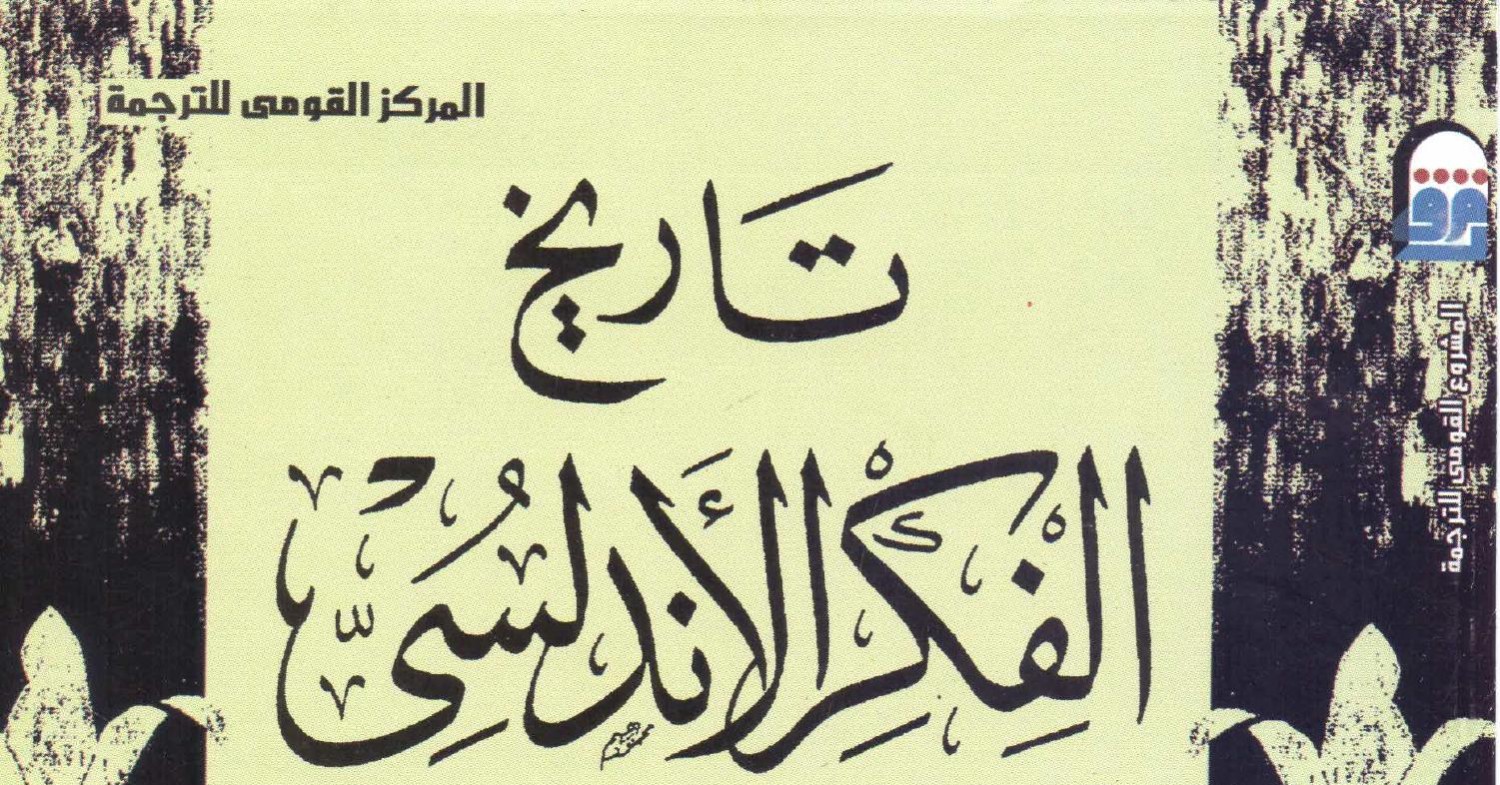 المركز القومى للترجمة
تاريخ
الفِكْرِ الأَندلُسِىّ
المشروع القومى للترجمة